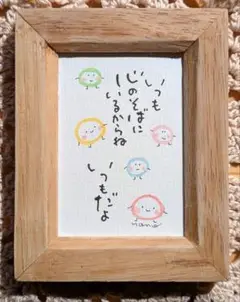 いつも
心のそばに
いるからね
いつもだよ
nano